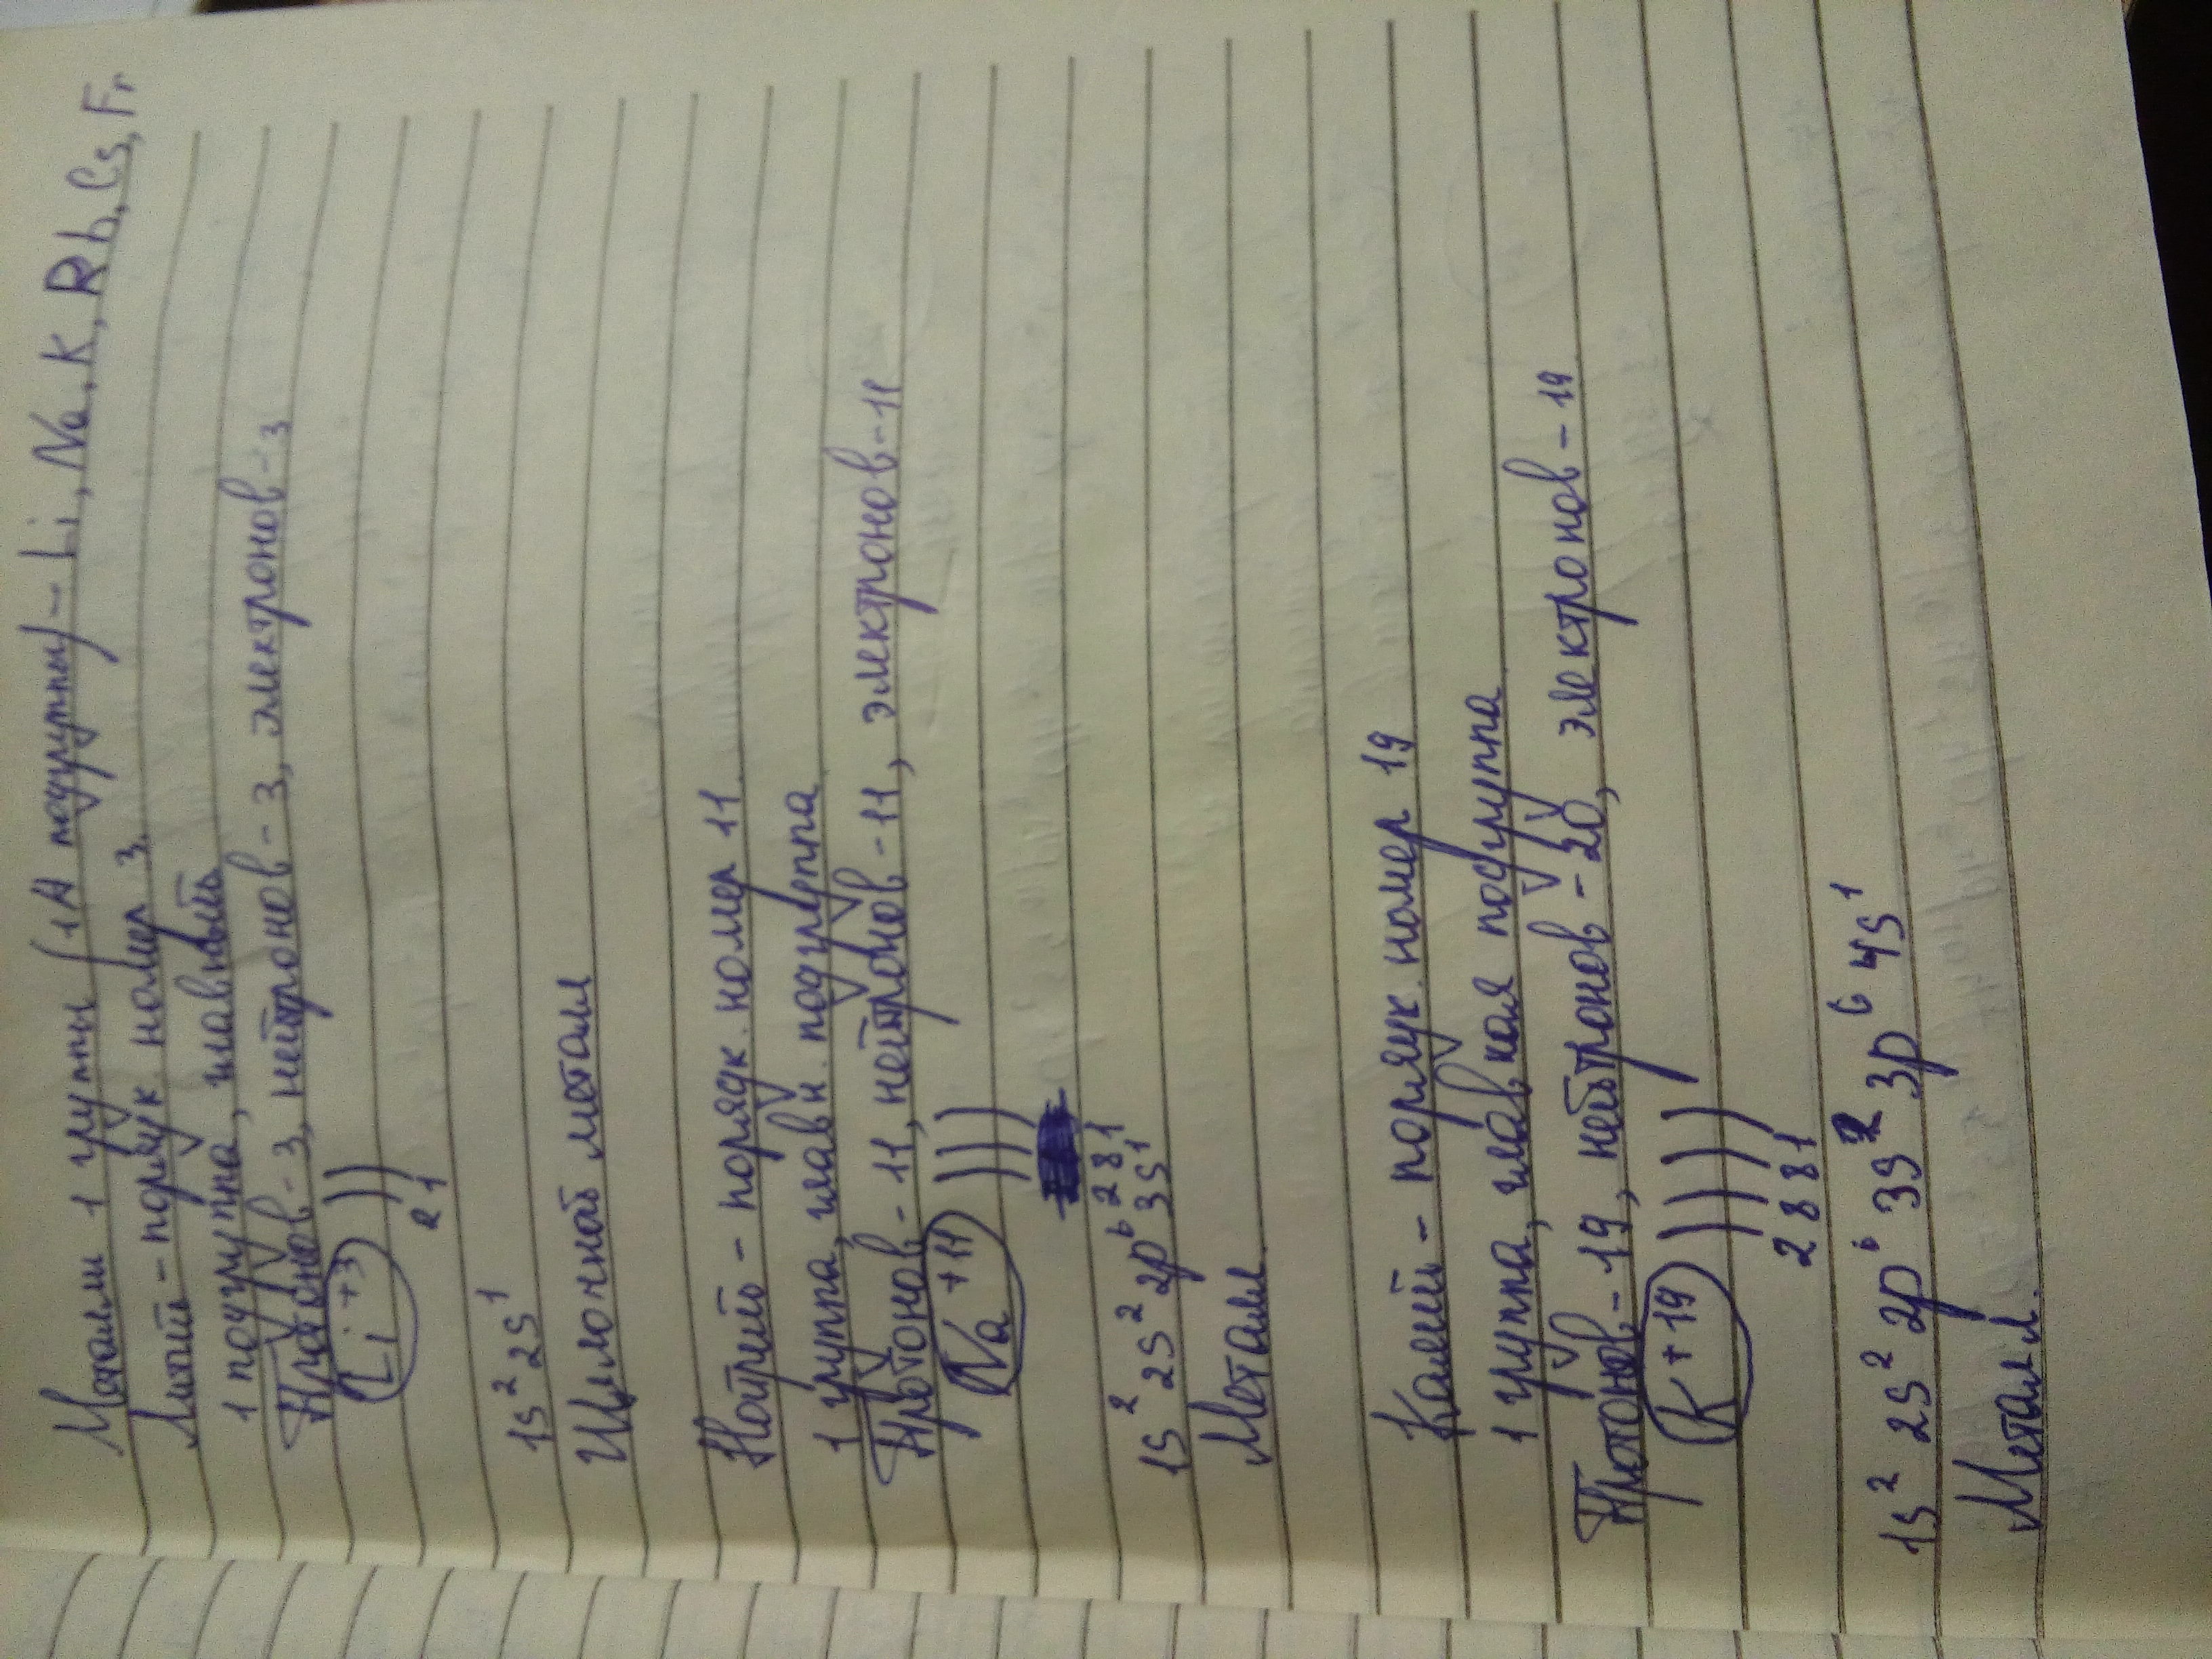 Металлы 1 группы (1А подгруппы) - Li, Na, K, Rb, Cs, Fr
Литий - порядк номер 3.
1 подгруппа, главный
Протонов - 3, нейтронов - 3, электронов - 3
Li +3 ) )
2 1
1s² 2s¹
Щелочной металл
Натрий - порядк. номер 11
1 группа, главн. подгруппа
Протонов - 11, нейтронов - 11, электронов - 11
Na +11 ) ) )
2 8 1
1s² 2s² 2p⁶ 3s¹
Металл
Калий - порядк. номер 19
1 группа, главная подгруппа
Протонов - 19, нейтронов - 20, электронов - 19
K +19 ) ) ) )
2 8 8 1
1s² 2s² 2p⁶ 3s² 3p⁶ 4s¹
Металл.